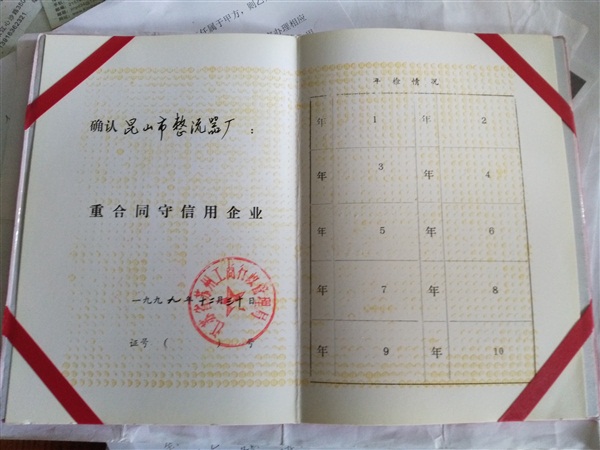 确认昆山市整流器厂：
重合同守信用企业
一九九九年十二月三十日
江苏省苏州工商行政管理局
证号（ ）号
年检情况
年 1 年 2
年 3 年 4
年 5 年 6
年 7 年 8
年 9 年 10